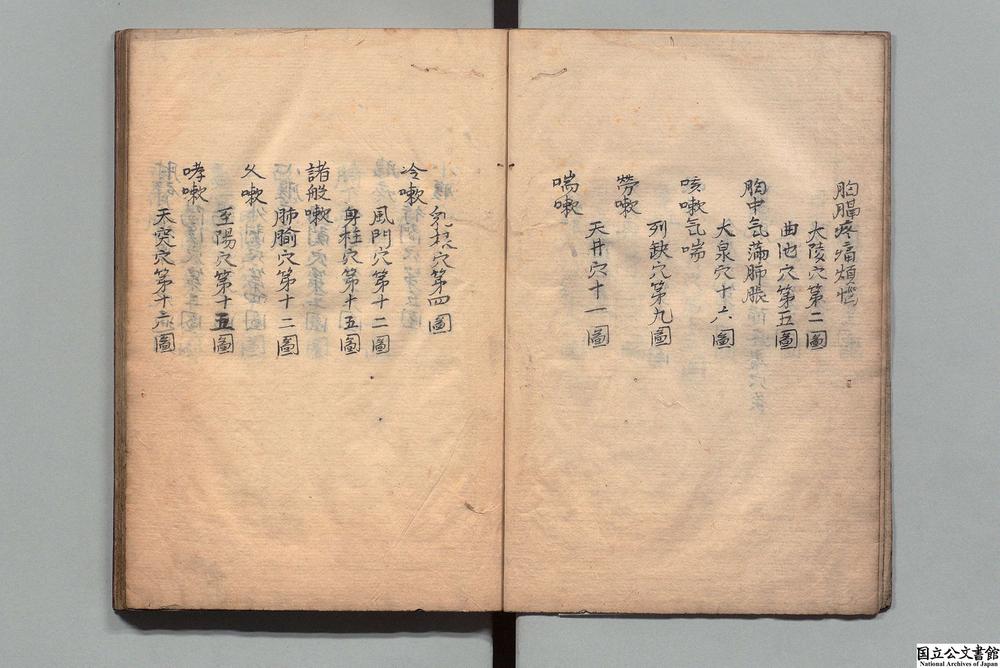 胸膈疼痛煩惱
大陵穴第二圖
曲池穴第五圖
胸中气滿肺脹
太泉穴十六圖
咳嗽气喘
列缺穴第九圖
勞嗽
天井穴十一圖
喘嗽
穴第四圖
冷嗽
風門穴第十二圖
身柱穴第十五圖
諸般嗽
肺腧穴第十二圖
久嗽
至陽穴第十五圖
哮嗽
天突穴第十六圖
国立公文書館
National Archives of Japan